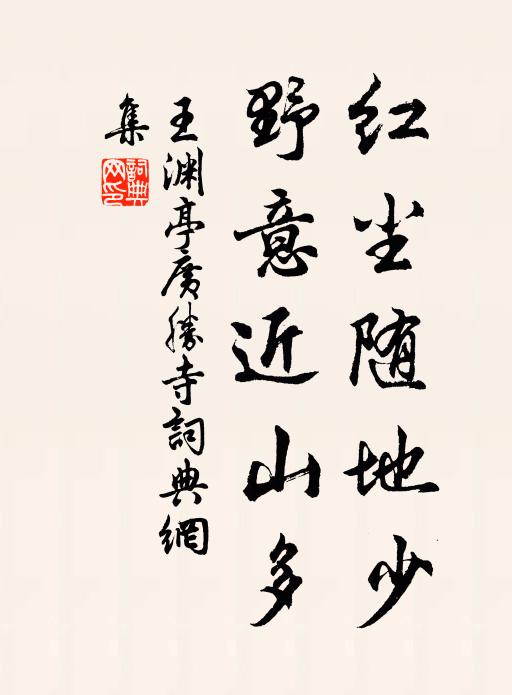 红尘随地少
野意近山多
王渊亭广胜寺詞典網
集
詞典
网印